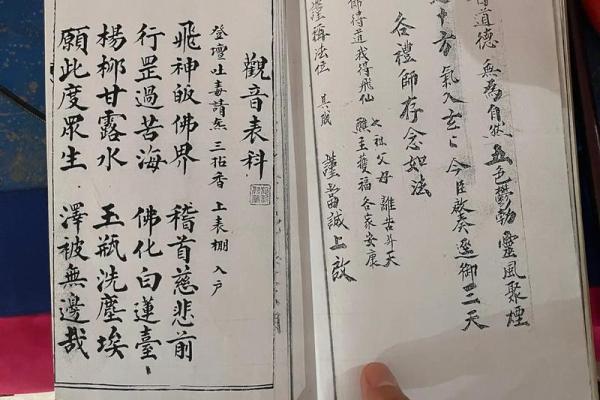 得道德 無為自然 五色鬱勃 靈風聚煙
中方氣入玄 今臣啟奏 逕御三天
各禮師存念如法
七祖父母 離苦升天
師得道我得飛仙 醮主獲福 各家安康
謹稱法位 具職 謹當誠上啟
觀音表科
登壇吐毒請無三拈香 上表棚入户
飛神皈佛界 稽首慈悲前
行罡過苦海 佛化白蓮臺
楊柳甘露水 玉瓶洗塵埃
願此度眾生 澤被無邊哉